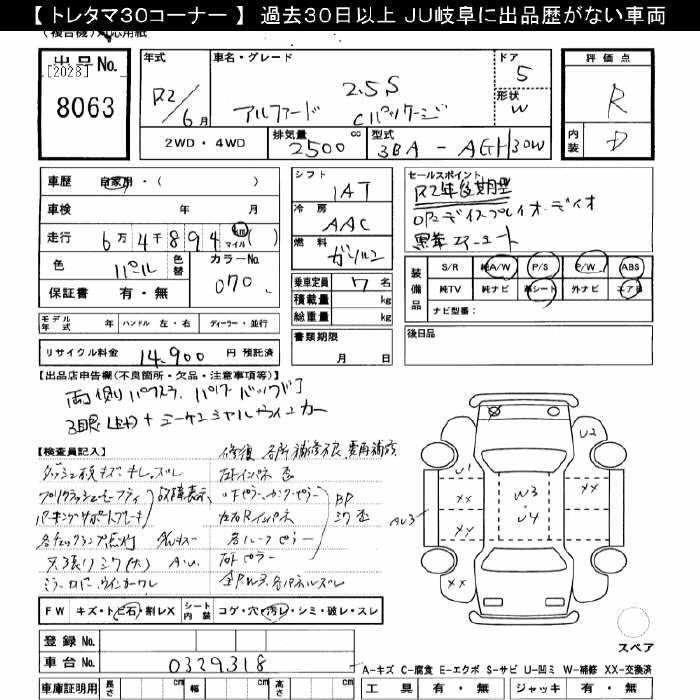 【 トレタマ30コーナー 】 過去30日以上 JU岐阜に出品歴がない車両
(複合機)対応用紙
出品No.
[2028]
8063
年式
R2/6月
車名・グレード
2.5S
アルファード Cパッケージ
ドア
5
形状
W
評価点
R
内装
D
2WD・4WD
排気量
2500 cc
型式
3BA - AGH30W
車歴 自家用・( )
車検 年 月
走行 6万4千894 km マイル ( )
色 パール
色替
カラーNo.
070
保証書 有・無
シフト
IAT
冷房
AAC
燃料
ガソリン
乗車定員 7名
積載量 kg
総重量 kg
セールスポイント
R2年後期型
OPディスプレイオーディオ
黒革エアシート
装備品
S/R 純A/W P/S P/W ABS
純TV 純ナビ 革シート 外ナビ エアB
ナビ型番:
モデル年式 年 ハンドル 左・右 ディーラー・並行
書類期限
月 日
後日品
リサイクル料金 14,900 円 預託済
【出品店申告欄(不良箇所・欠品・注意事項等)】
両側パワスラ、パワーバックドア
3眼(LED)+シーケンシャルウィンカー
【検査員記入】
ダッシュ板キズ
プリクラッシュセーフティ
パーキングサポートブレーキ
故障表示
各チェックランプ点灯
天張りシワ(大)
A・U
ミラー
FW キズ・トビ石・割レX
シート内装 コゲ・穴・汚レ・シミ・破レ・スレ
登録No.
車台No. 0329318
車庫証明用 長さ cm 幅 cm 高さ cm
U1
U2
XX
XX
XX
XX
XX
W3
U4
AU3
スペア
A-キズ C-腐食 E-エクボ S-サビ U-凹ミ W-補修 XX-交換済
工具 有・無 ジャッキ 有・無